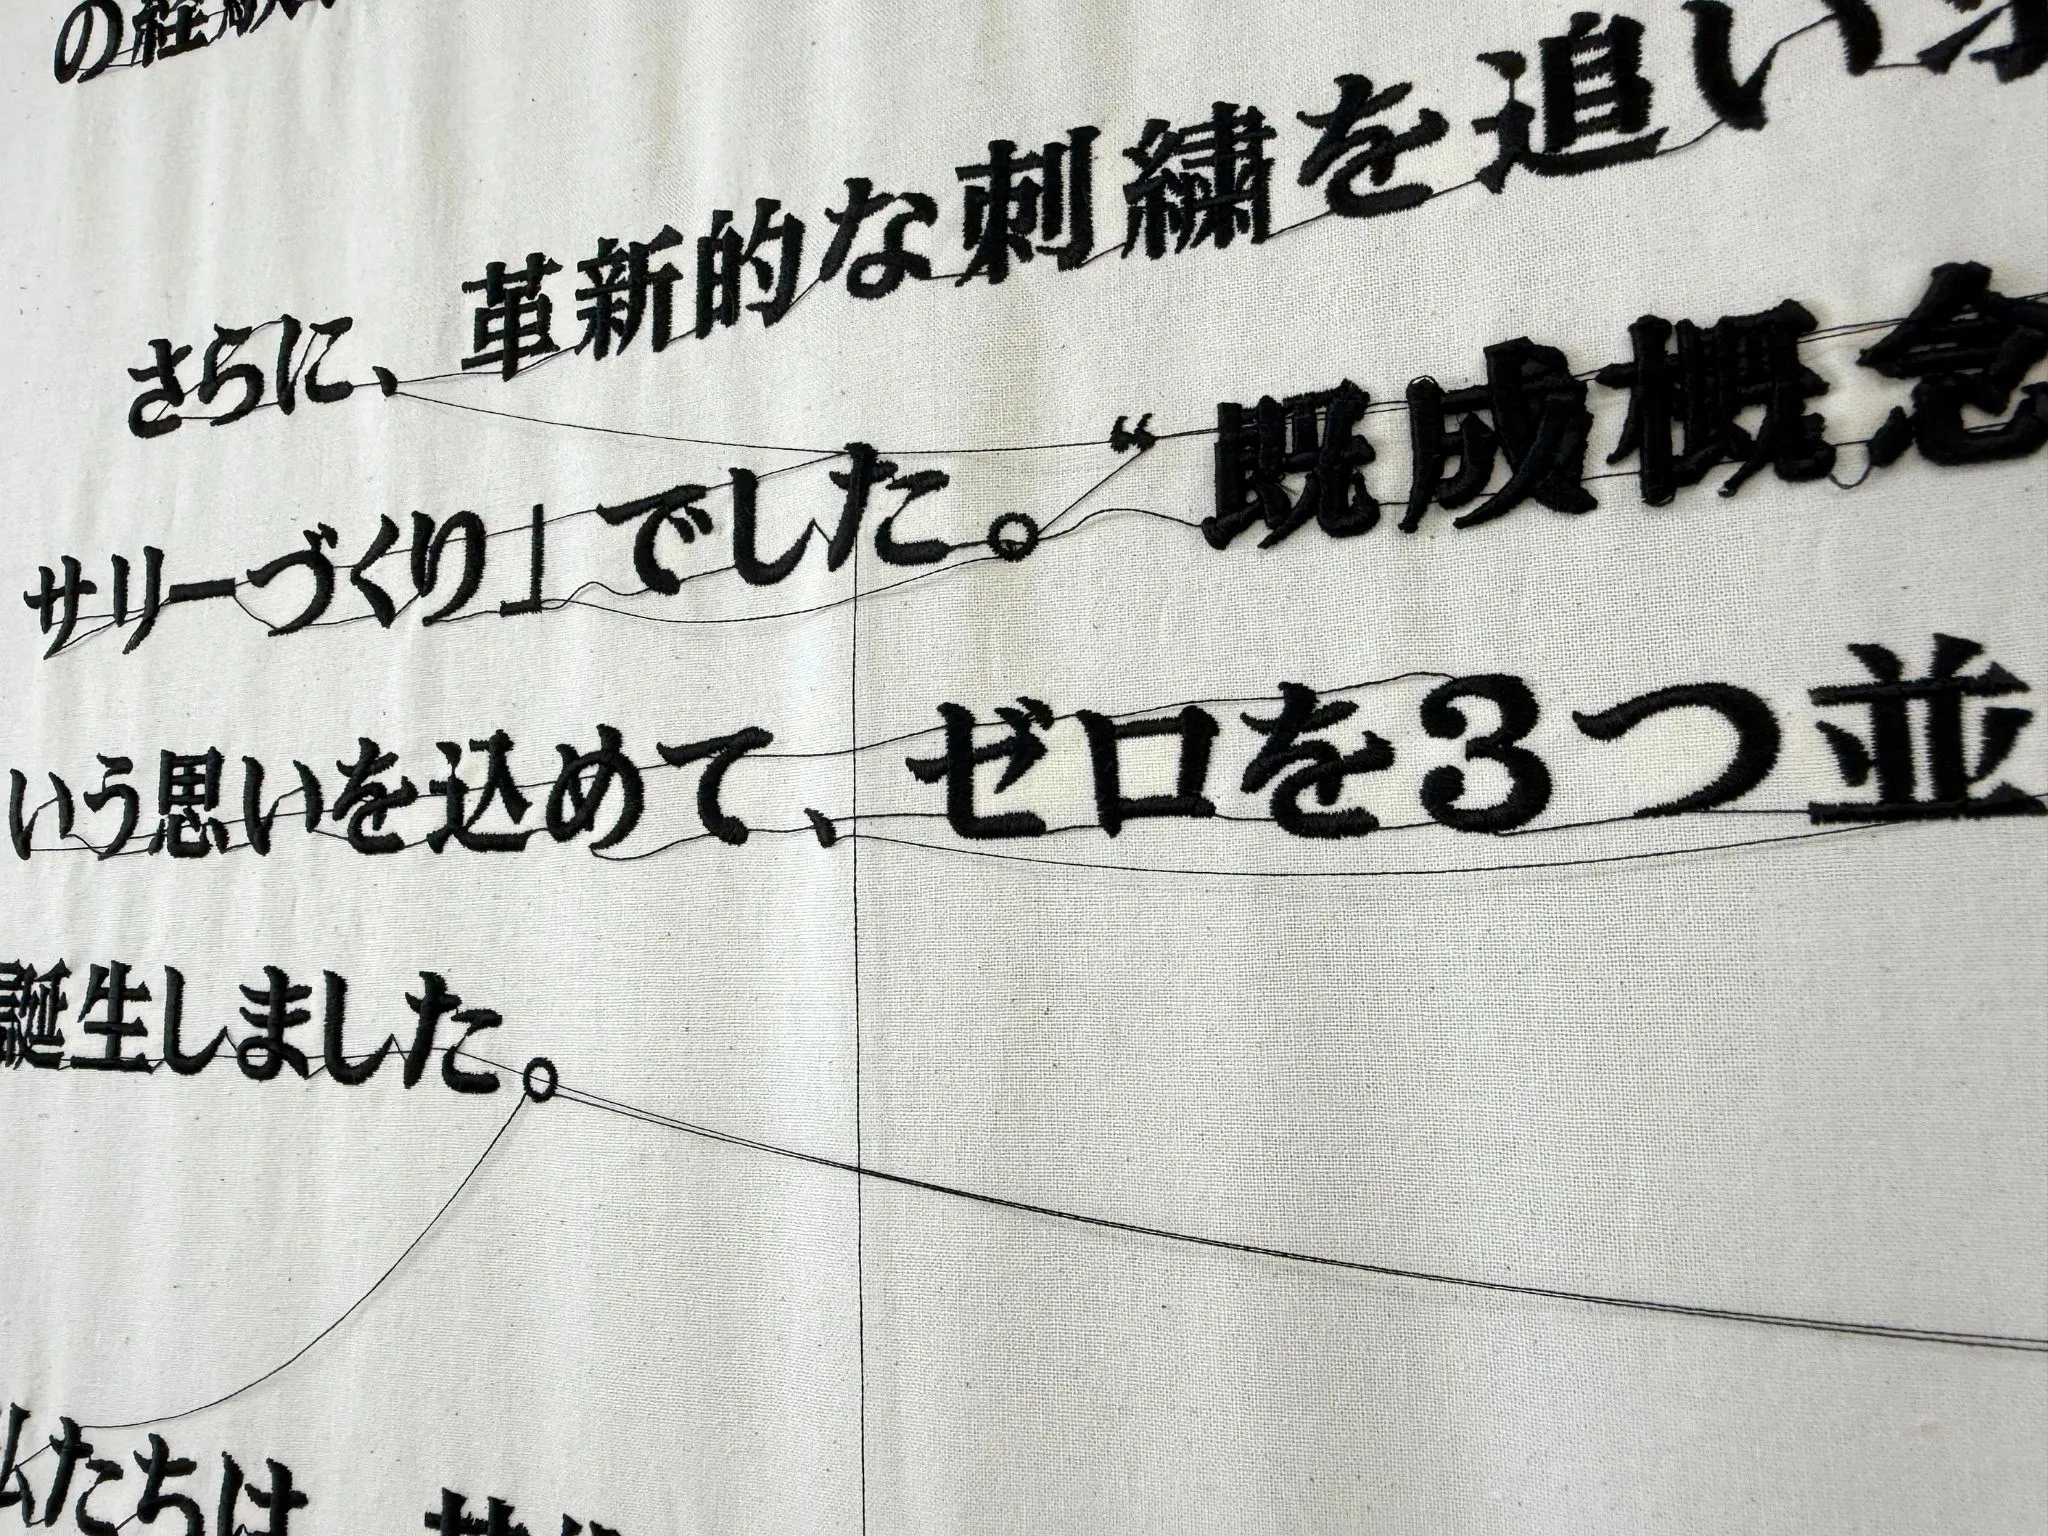 の経
さらに、革新的な刺繍を追い
サリーづくり」でした。“既成概念
いう思いを込めて、ゼロを3つ並
誕生しました。
私たちは